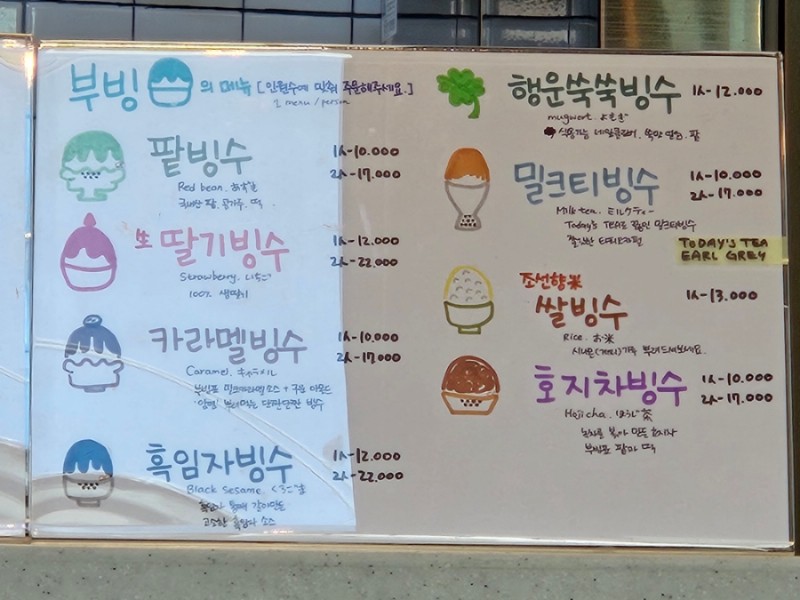 부빙 의 메뉴 [인원수에 맞춰 주문해주세요.]
1 menu / person
팥빙수 1人-10.000
Red bean. あずき 2人-17.000
국내산 팥, 콩가루, 떡
生 딸기빙수 1人-12.000
Strawberry. いちご 2人-22.000
100% 생딸기
카라멜빙수 1人-10.000
Caramel. キャラメル 2人-17.000
부빙표 밀크카라멜소스 + 구운 아몬드
뿌려먹는 단짠단짠 빙수
흑임자빙수 1人-12.000
Black sesame. くろごま 2人-22.000
흑임자 통째 갈아만든
고소한 흑임자 소스
행운쑥쑥빙수 1人-12.000
mugwort. よもぎ
식용가능 네잎클로버, 쑥앙금, 팥
밀크티빙수 1人-10.000
2人-17.000
Milk tea. ミルクティー
Today's TEA로 만든 밀크티빙수
TODAY'S TEA
EARL GREY
조선향米
쌀빙수 1人-13.000
Rice. お米
시나몬(계피)가루 뿌려드세요.
호지차빙수 1人-10.000
2人-17.000
Hojicha. ほうじ茶
녹차를 볶아 만든 호지차
부빙표 팥과 떡